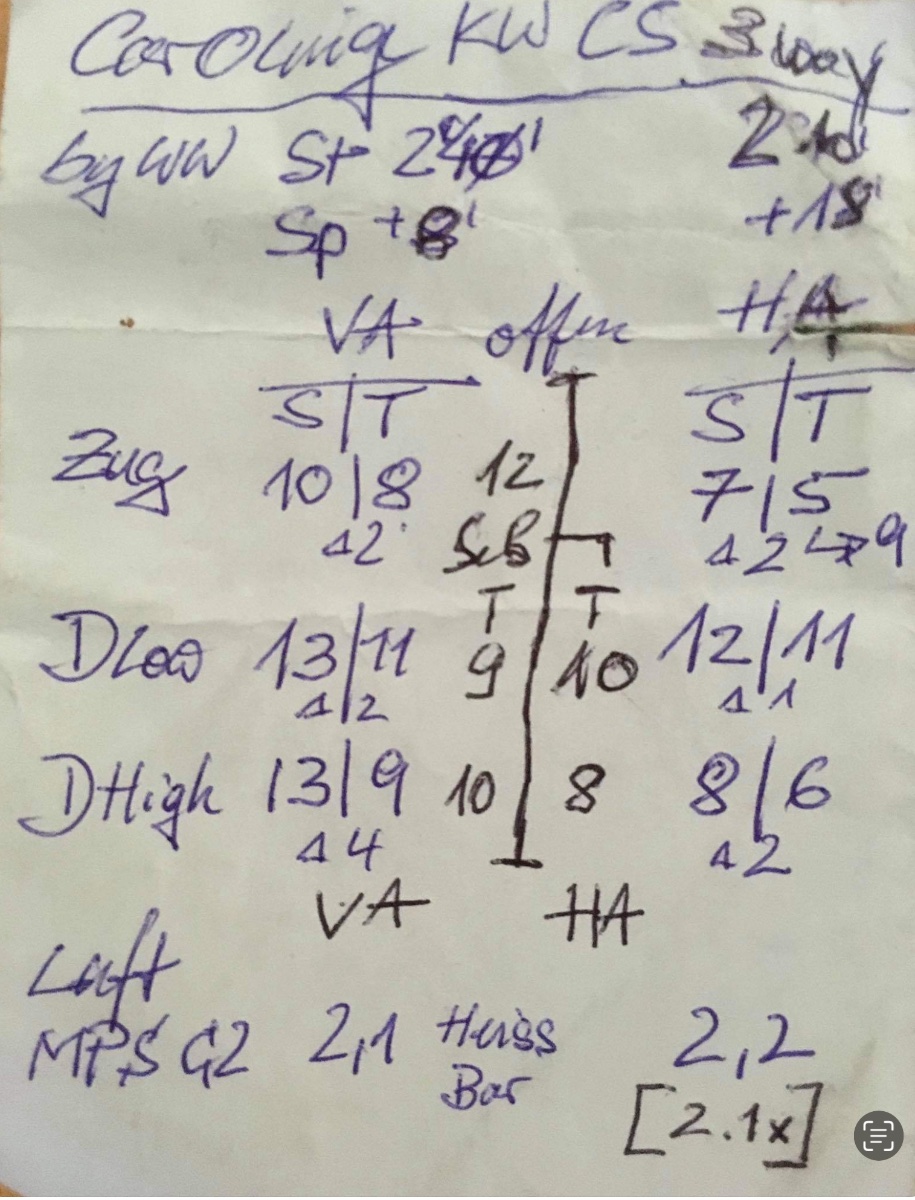 KW CS 3way
by WW St 2°
Sp +8' +18'
VA offen HA
S|T S|T
Zug 10|8 12 7|5
Δ2 Δ2 ↳ 9
T T
DLow 13|11 9 10 12|11
Δ|2 Δ1
DHigh 13|9 10 8 8|6
Δ4 Δ2
VA HA
Luft
MPS G2 2,1 Heiss 2,2
Bar
[2.1x]